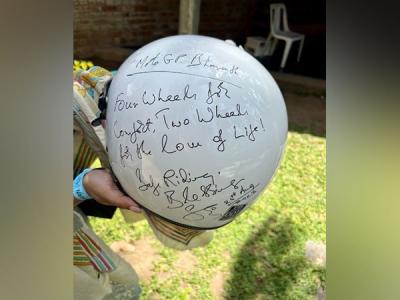 Moto GP Bharat
Four Wheels for
Comfort, Two Wheels
for the Love of Life!
Safe Riding.
Blessings